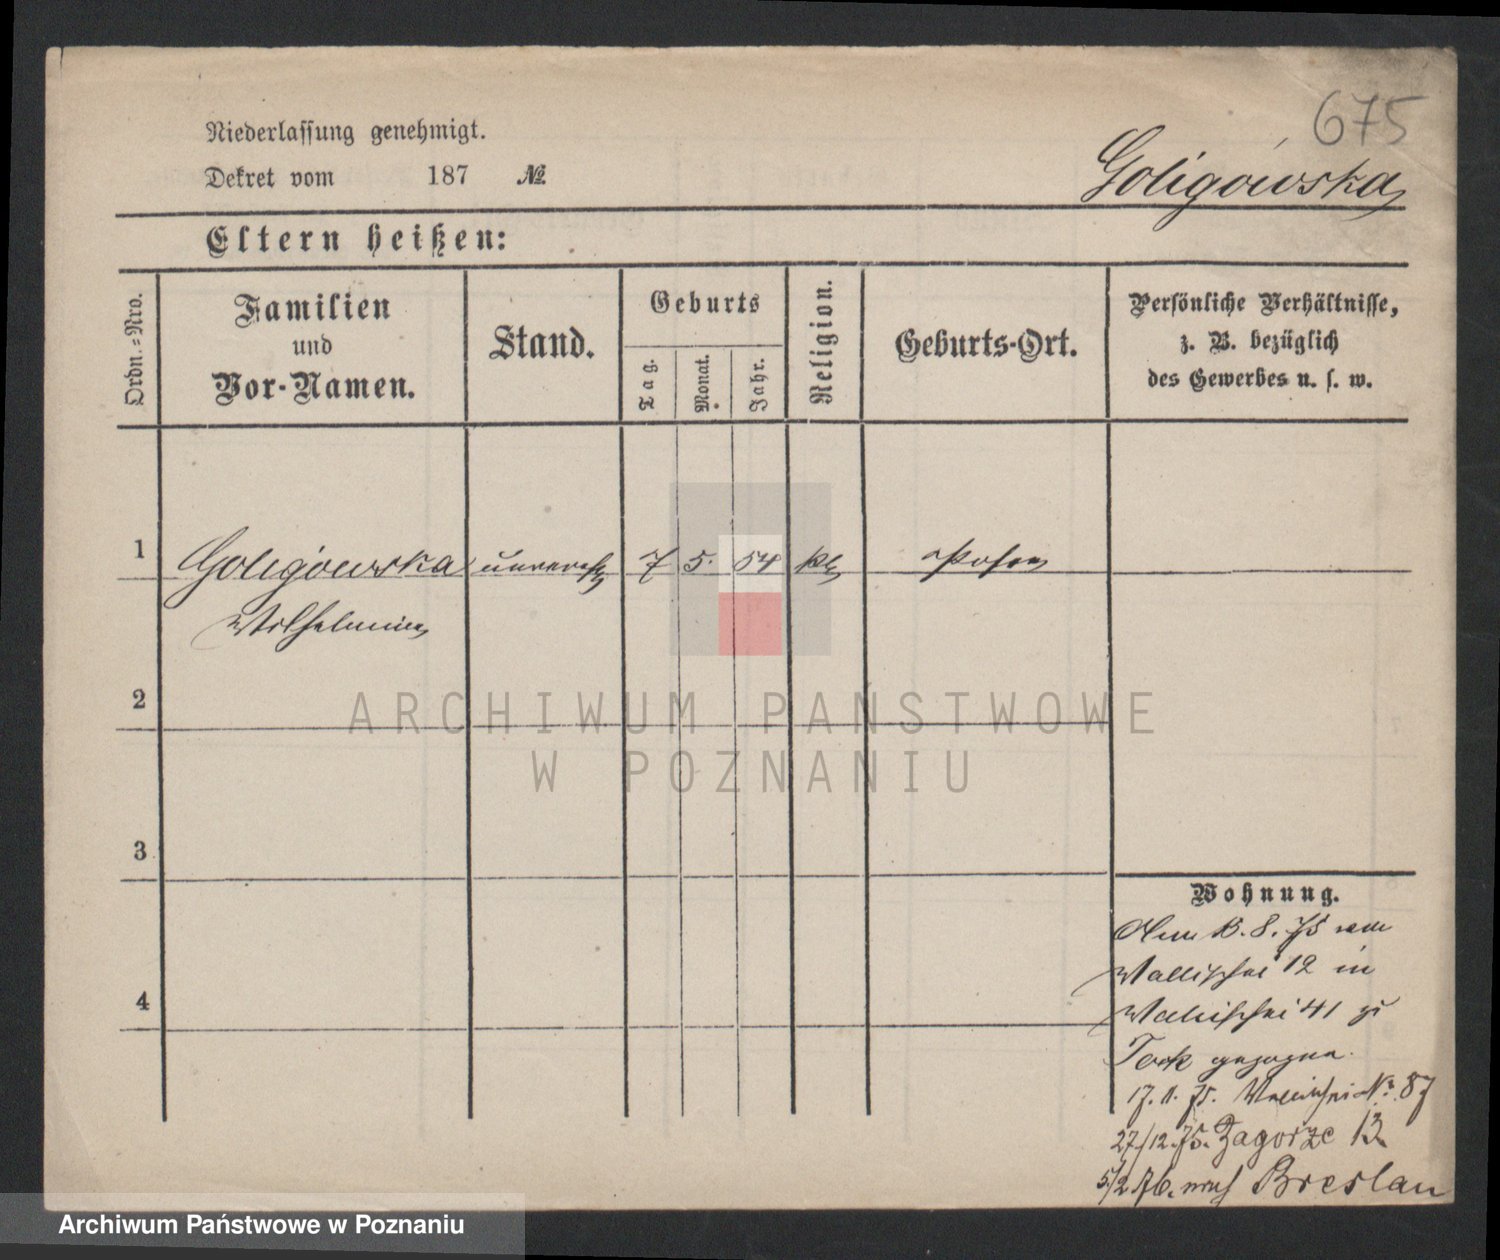 675
Niederlassung genehmigt.
Dekret vom 187 №
Goligówska
Eltern heißen:
Ordn.=Nro.
Familien
und
Vor-Namen.
Stand.
Geburts
Tag.
Monat.
Jahr.
Religion.
Geburts-Ort.
Persönliche Verhältnisse,
z. B. bezüglich
des Gewerbes u. s. w.
1 Goligówska unvereh 7 5. 54 kth Posen
Wilhelmine
2
3
4
Wohnung.
Am 13. 8. 75 von
Wallischei 12 in
Wallischei 41 zu
Tock gezogen.
17. 11. 75. Wallischei № 87
27/12. 75. Zagorze 13
5/2 76. nach Breslau
ARCHIWUM PAŃSTWOWE
W POZNANIU
Archiwum Państwowe w Poznaniu